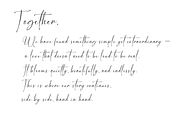 Together,
We have found something simple yet extraordinary —
a love that doesn't need to be loud to be real.
It blooms quietly, beautifully, and endlessly.
This is where our story continues,
side by side, hand in hand.